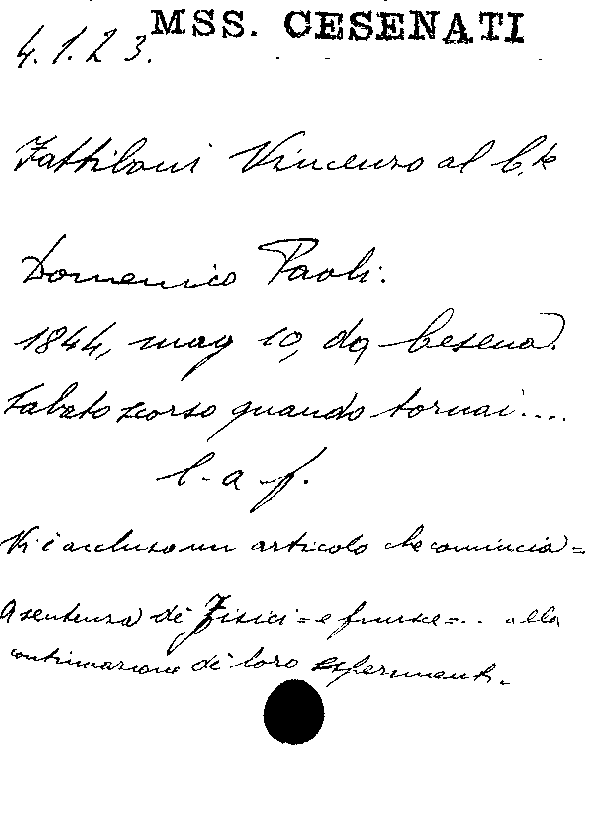 MSS. CESENATI
4.1.23.
Fattiboni Vincenzo al C.te
Domenico Paoli.
1844, mag 10, da Cesena.
Sabato scorso quando tornai....
l. a f.
Vi è accluso un articolo che comincia =
A sentenza di Fisici = e finisce = .. alla
continuazione di loro esperimenti.